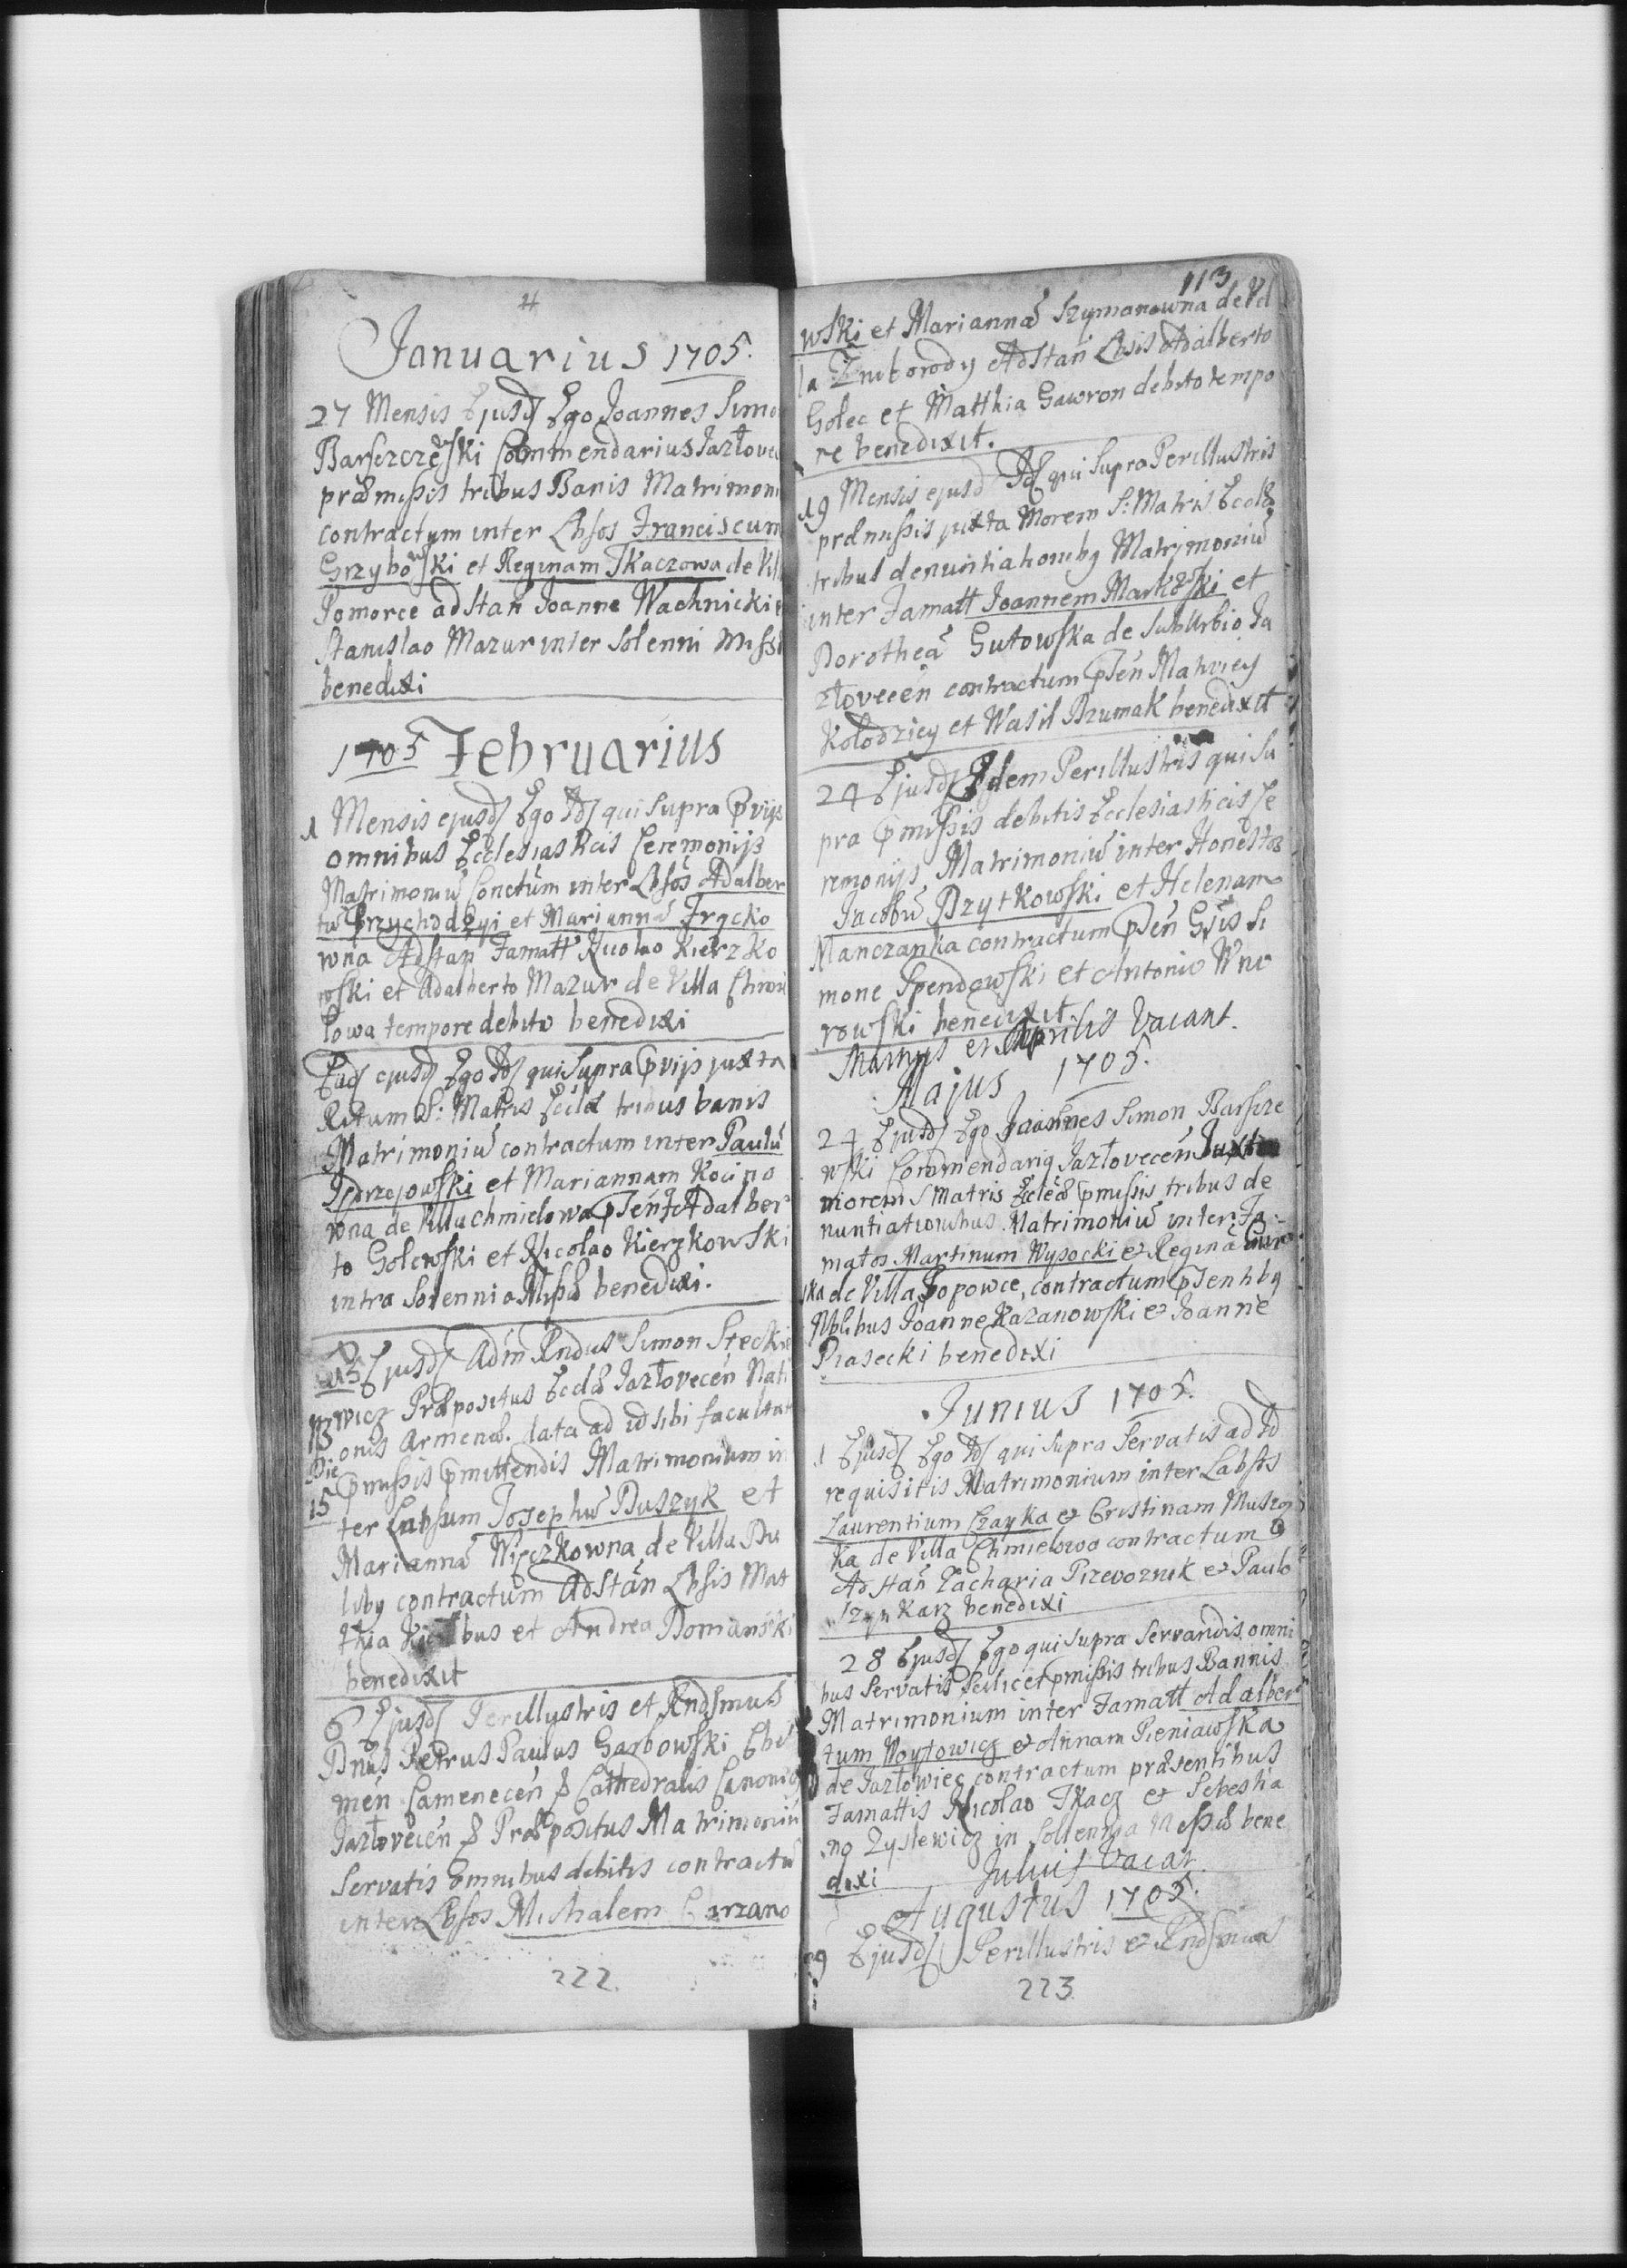 Januarius 1705.
27 Mensis Ejusd Ego Joannes Simo
Barszczewski Commendarius Jazłovec
præmissis tribus Banis Matrimoni
contractum inter Lbsos Franciscum
Grzybowski et Reginam Tkaczowa de Vill
Pomorce adstan Joanne Wachnicki e
Stanislao Mazur inter Solenni Missa
benedixi
1705 Februarius
1 Mensis ejusd Ego Id qui supra pvijs
omnibus Ecclesiasticis Ceremonijs
Matrimoniu Conctum inter Lbsos Adalber
tu Przychodzyi et Marianna Frącko
wna Adstan Famatt Nicolao Kierzko
wski et Adalberto Mazur de Villa Chmie
lowa tempore debito benedixi
Ead ejusd Ego Id qui supra pvijs juxta
Ritum S: Matris Eccla tribus banis
Matrimoniu contractum inter Paulu
Jędrzejowski et Mariannam Kocino
wna de Villa chmielowa psen Adalber
to Golewski et Nicolao Kierzkowski
intra Solennia Missæ benedixi.
13 Ejusd Adm Rndus Simon Stecki
13 wicz Præpositus Eccla Jazłovecen Nati
Die onis Armenæ. data ad id sibi facultat
15 pmissis pmittendis Matrimonium in
ter Labsum Josephu Duszyk et
Marianna Więczkowna de Villa Du
liby contractum Adstan Lbsis Mat
thia et Andrea Domanski
benedixit
6 Ejusd Perillustris et Rndsmus
Dnus Petrus Paulus Garbowski
men Camenecen & Cathedralis Canonicq
Jazłovecen & Præpositus Matrimoniu
Servatis omnibus debitis contractu
inter Lbsos Michalem
222.
113
wski et Marianna Szymanowna de Vil
la Żniborody Adstan Lbsis Adalberto
Golec et Matthia Gawron debito tempo
re benedixit.
19 Mensis ejusd Id qui supra Perillustris
præmissis juxta Morem S: Matris Eccla
tribus denuntiationibq Matrimoniu
inter Famatt Joannem Markowski et
Dorothea Gutowska de SubUrbio Ja
złovecen contractum psen Matwiey
Kołodziey et Wasil Brumak benedixit
24 Ejusd Idem Perillustris qui su
pra pmissis debitis Ecclesiasticis Ce
remonijs Matrimoniu inter Honestos
Jacobu Dzytkowski et Helenam
Manczanka contractum psen Gsis Si
mone Spendowski et Antonio Wnu
rowski benedixit.
Martius et Aprilis Vacant.
Majus 1705.
24 Ejusd Ego Joannes Simon Barszcze
wski Commendariq Jazłovecen Juxta
morem S Matris Eccleæ pmissis tribus de
nuntiationibus Matrimoniu inter Fa-
matos Martinum Wysocki et Regina
ska de Villa Popowce, contractum psentibq
Nblibus Joanne Kazanowski et Joanne
Piasecki benedixi
Junius 1705.
1 Ejusd Ego Id qui supra Servatis ad Id
requisitis Matrimonium inter Labsos
Laurentium Czayka et Cristinam
ka de Villa Chmielowa contractum
Adstan Zacharia Przevoznik et Paulo
Szynkarz benedixi
28 Ejusd Ego qui supra Servandis omni
bus Servatis Scilicet pmissis tribus Bannis
Matrimonium inter Famatt Adalber
tum Woytowicz et Annam Pieniawska
de Jazłowiec contractum præsentibus
Famattis Nicolao Tkacz et Sebestia
no Zyslewicz in sollennia Missæ bene
dixi
Julius Vacat.
Augustus 1705.
Ejusd Perillustris et Rndsmus
223